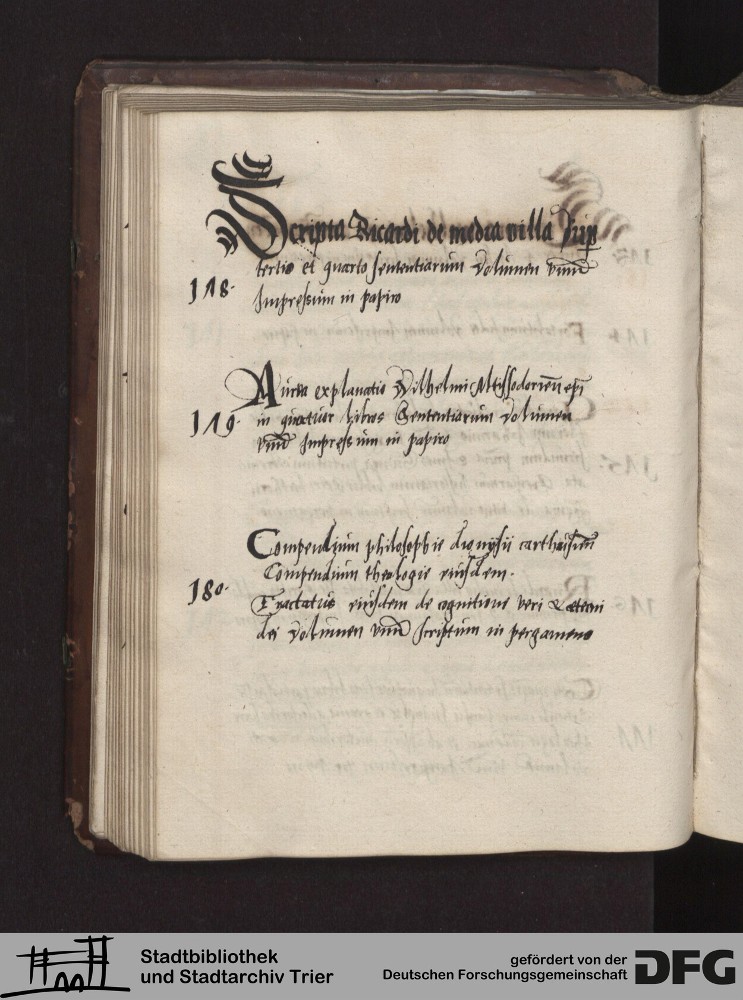 Scripta Ricardi de media villa sup
tertio et quarto sententiarum Volumen vnū
178.
Impressum in papiro
Aurea explanatio Wilhelmi Altissodoriēn epi
in quatuor libros Sententiarum Volumen
179.
vnū Impressum in papiro
Compendium philosophie dionysii carthusien̄
Compendium theologie eiusdem.
180.
Tractatus eiusdem de cognitione veri & eterni
dei Volumen vnū scriptum in pergameno
Stadtbibliothek
und Stadtarchiv Trier
gefördert von der
Deutschen Forschungsgemeinschaft
DFG